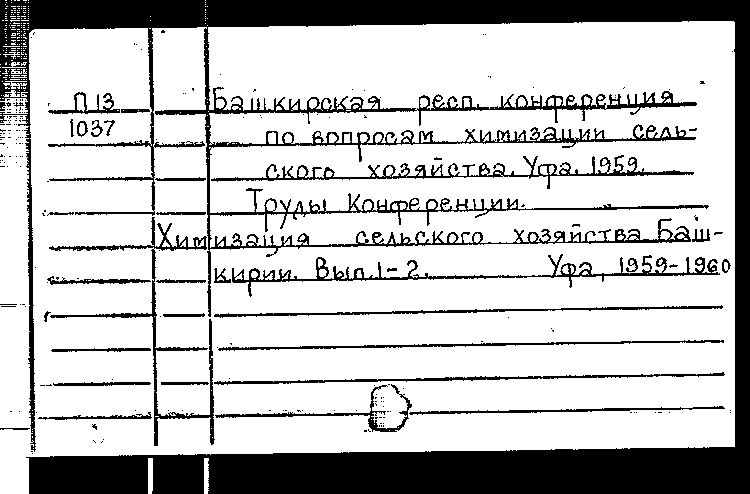 П 13
1037
Башкирская респ. конференция
по вопросам химизации сель-
ского хозяйства. Уфа. 1959.
Труды Конференции.
Химизация сельского хозяйства Баш-
кирии. Вып. 1-2. Уфа, 1959-1960